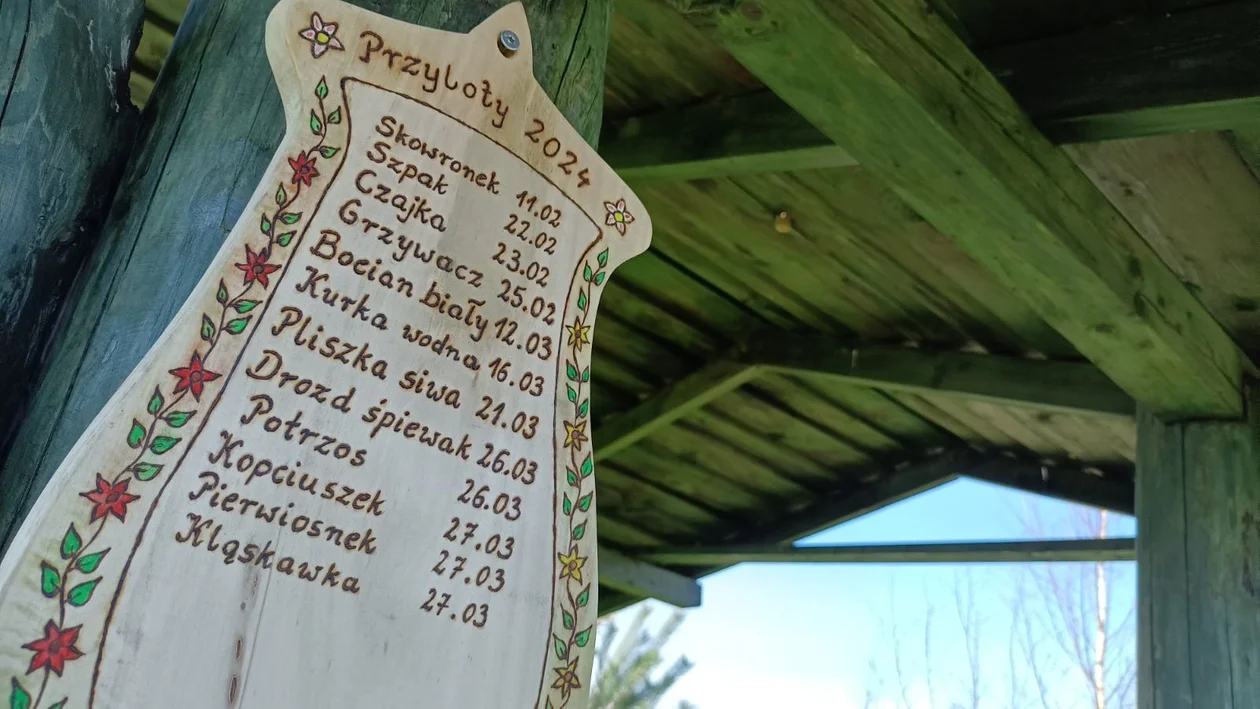 Przyloty 2024
Skowronek 11.02
Szpak 22.02
Czajka 23.02
Grzywacz 25.02
Bocian biały 12.03
Kurka wodna 16.03
Pliszka siwa 21.03
Drozd śpiewak 26.03
Potrzos 26.03
Kopciuszek 27.03
Pierwiosnek 27.03
Kląskawka 27.03